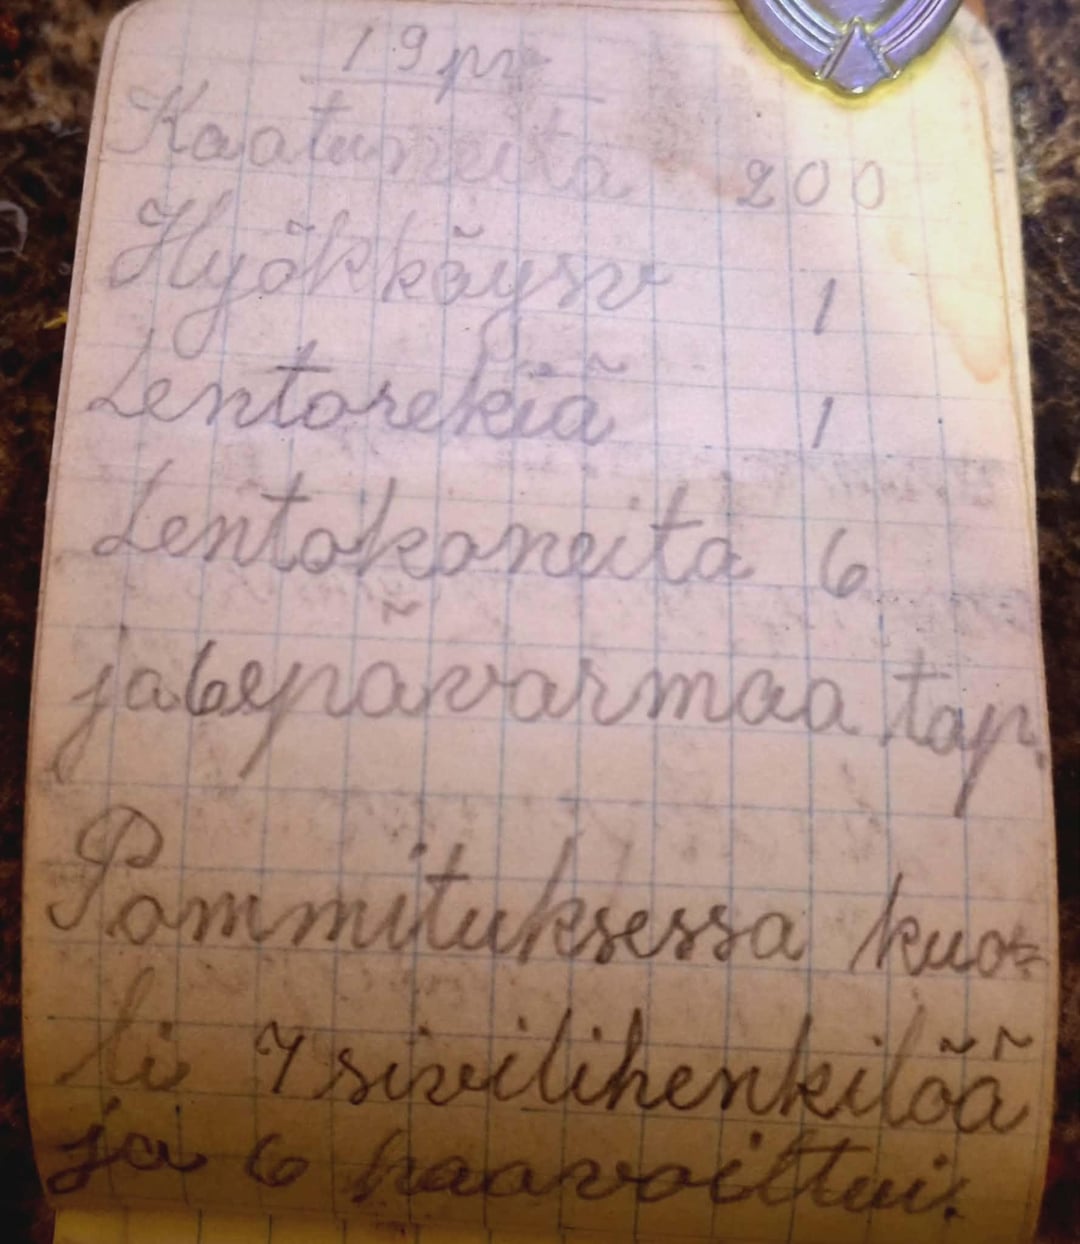 19 pv
Kaatuneita 200
Hyökkäysv 1
Lentorekiä 1
Lentokoneita 6
ja 6 epävarmaa tap.
Pommituksessa kuo=
li 7 sivilihenkilöä
ja 6 haavoittui.